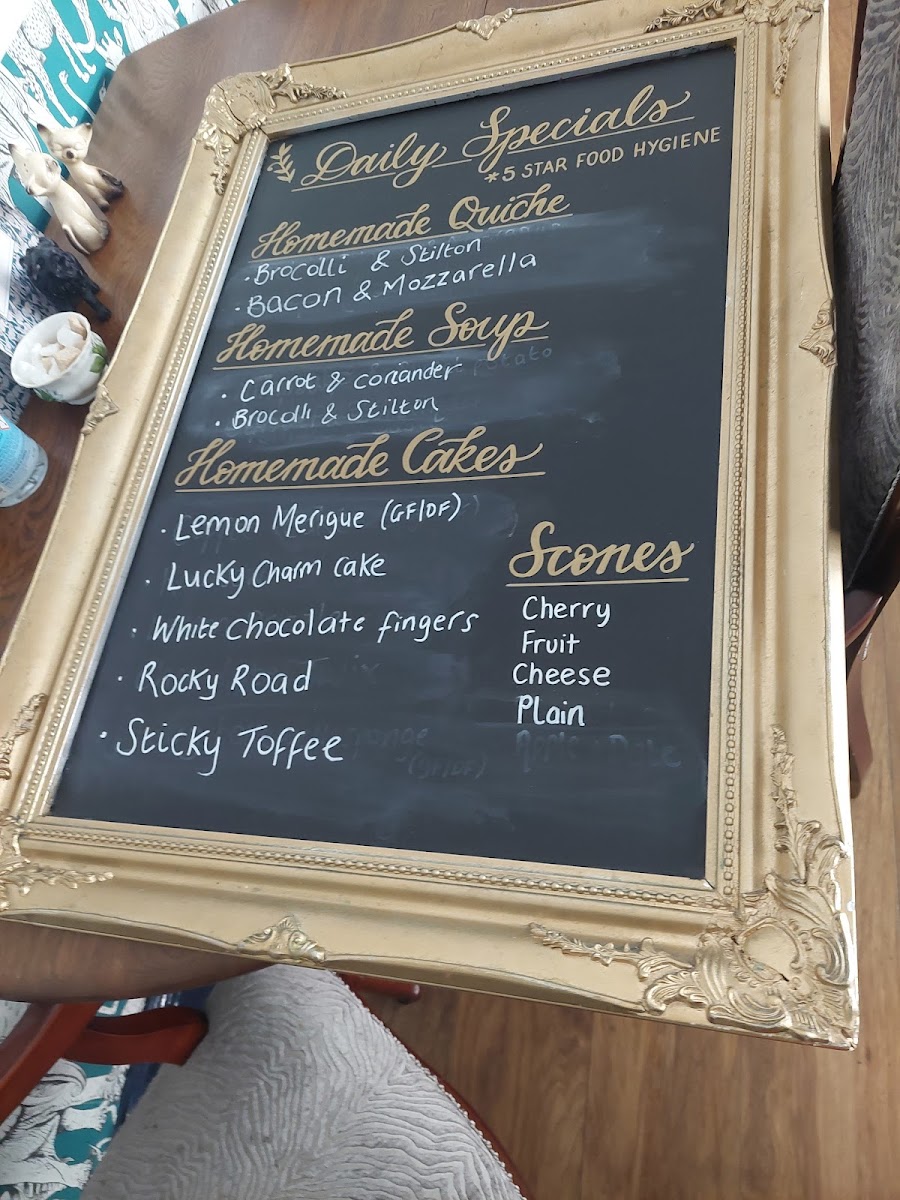 Daily Specials
*5 STAR FOOD HYGIENE
Homemade Quiche
· Brocolli & Stilton
· Bacon & Mozzarella
Homemade Soup
· Carrot & coriander
· Brocolli & Stilton
Homemade Cakes
· Lemon Merigue (GF/DF)
· Lucky Charm Cake
· White chocolate fingers
· Rocky Road
· Sticky Toffee
Scones
Cherry
Fruit
Cheese
Plain